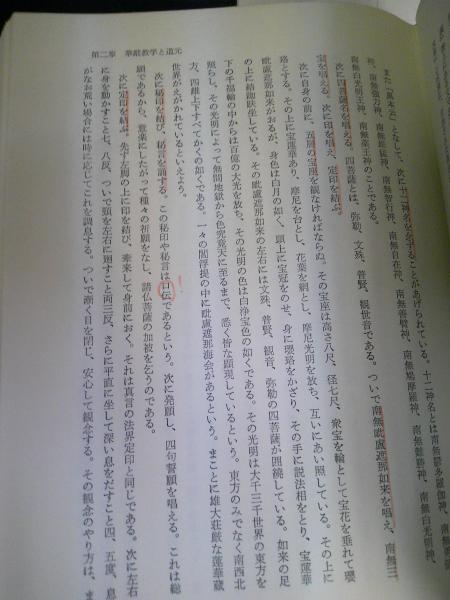 第二章　華厳教学と道元
また「異本元」として、次に十二神名を念ずることがあげられている。十二神名とは南無
神、南無強力神、南無雄猛神、南無智行神、南無自在神、南無善臂神、南無鳩摩羅神、南無難勝神、
南無白光明王神、南無薬王神のことである。
次に四菩薩名を唱える。四菩薩とは、弥勒、文殊、普賢、観世音である。ついで南無毗盧遮那如来を唱え、南無三
宝を唱える。次に印を唱え、定印を結ぶ。
次に自身の前に、五層の宝座を観なければならぬ。その宝座は高さ八尺、径七尺、衆宝を輪として宝花を垂れて瓔
珞とする。その上に宝蓮華あり、摩尼を台とし、花葉を網とし、摩尼光明を放ち、互いにあい照している。その上に
毗盧遮那如来がおるが、身色は白月の如く、頭上に宝冠をのせ、身に瓔珞をかざり、その手に説法相をとり、宝蓮華
の上に結跏趺坐している。その毗盧遮那如来の左右には文殊、普賢、観音、弥勒の四菩薩が囲繞している。如来の足
下の千輻輪の中からは百億の大光を放ち、その光明の色は白浄宝色の如くである。その光明は大千三千世界の東方を
照らし、その光明によって無間地獄から色究竟天に至るまで、悉く皆な顕現しているという。東方のみでなく南西北
方、四維上下すべてかくの如くである。一々の閻浮提の中に毗盧遮那海会があるという。まことに雄大荘厳な蓮華蔵
世界がえがかれているといえよう。
次に秘印を結び、秘言を誦する。この秘印や秘言は口伝であるという。次に発願し、四句誓願を唱える。これは総
願であるから、意楽にしたがって種々の祈願をなし、諸仏菩薩の加被を乞うのである。
次に定印を結ぶ。先ず左脚の上に印を結び、牽来して身前におく。それは真言の法界定印と同じである。次に左右
に身を動かすこと七、八反、ついで頸を左右に廻すこと両三反、さらに平直に坐して深い息をだすこと四、五度、息
がなお荒い場合には時に応じてこれを調息する。ついで漸く目を閉じ、安心して観念する。その観念のやり方は、ま